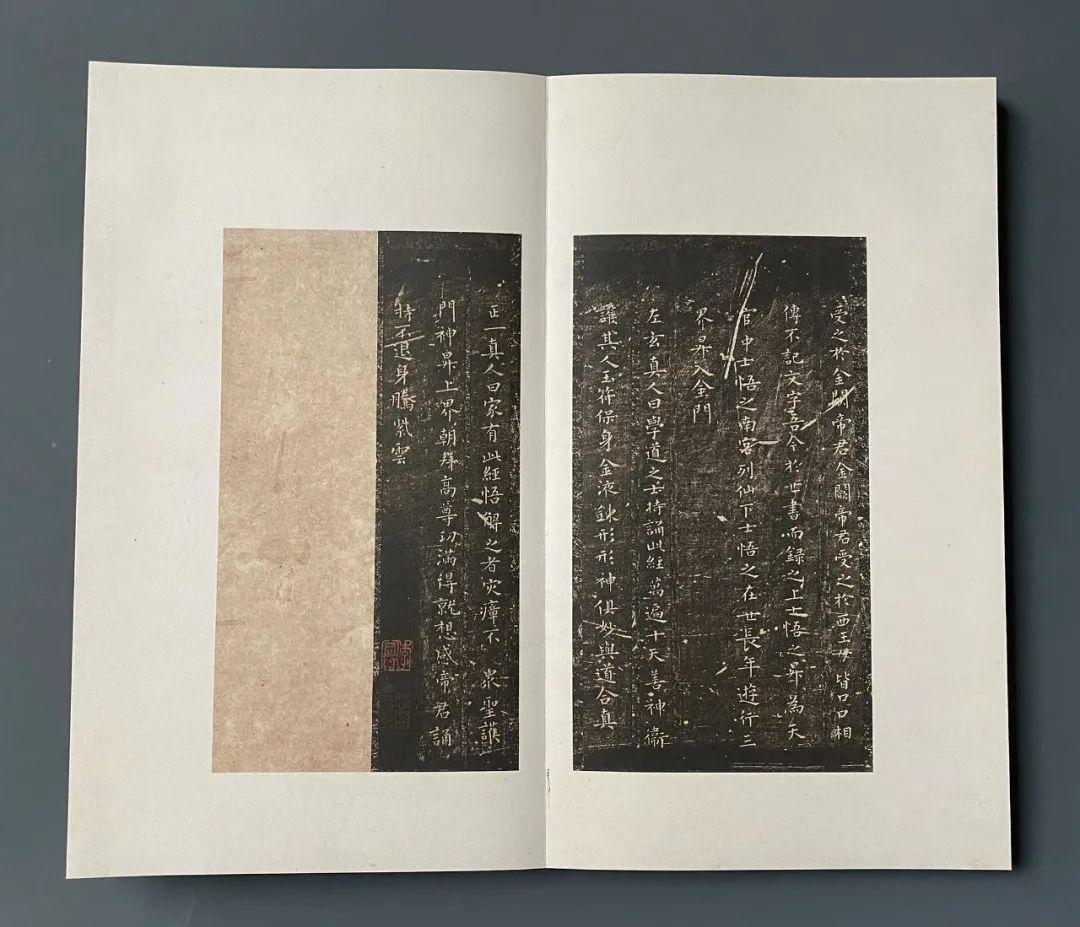 受之於金闕帝君金闕帝君受之於西王母皆口口相
傳不記文字吾今於世書而録之上士悟之昇為天
官中士悟之南宮列仙下士悟之在世長年遊行三
界昇入金門
左玄真人曰學道之士持誦此經萬遍十天善神衛
護其人玉符保身金液鍊形形神俱妙與道合真
正一真人曰家有此經悟解之者灾瘴不 衆聖護
門神昇上界朝拜高尊功滿得就想感帝君誦
持不退身騰紫雲